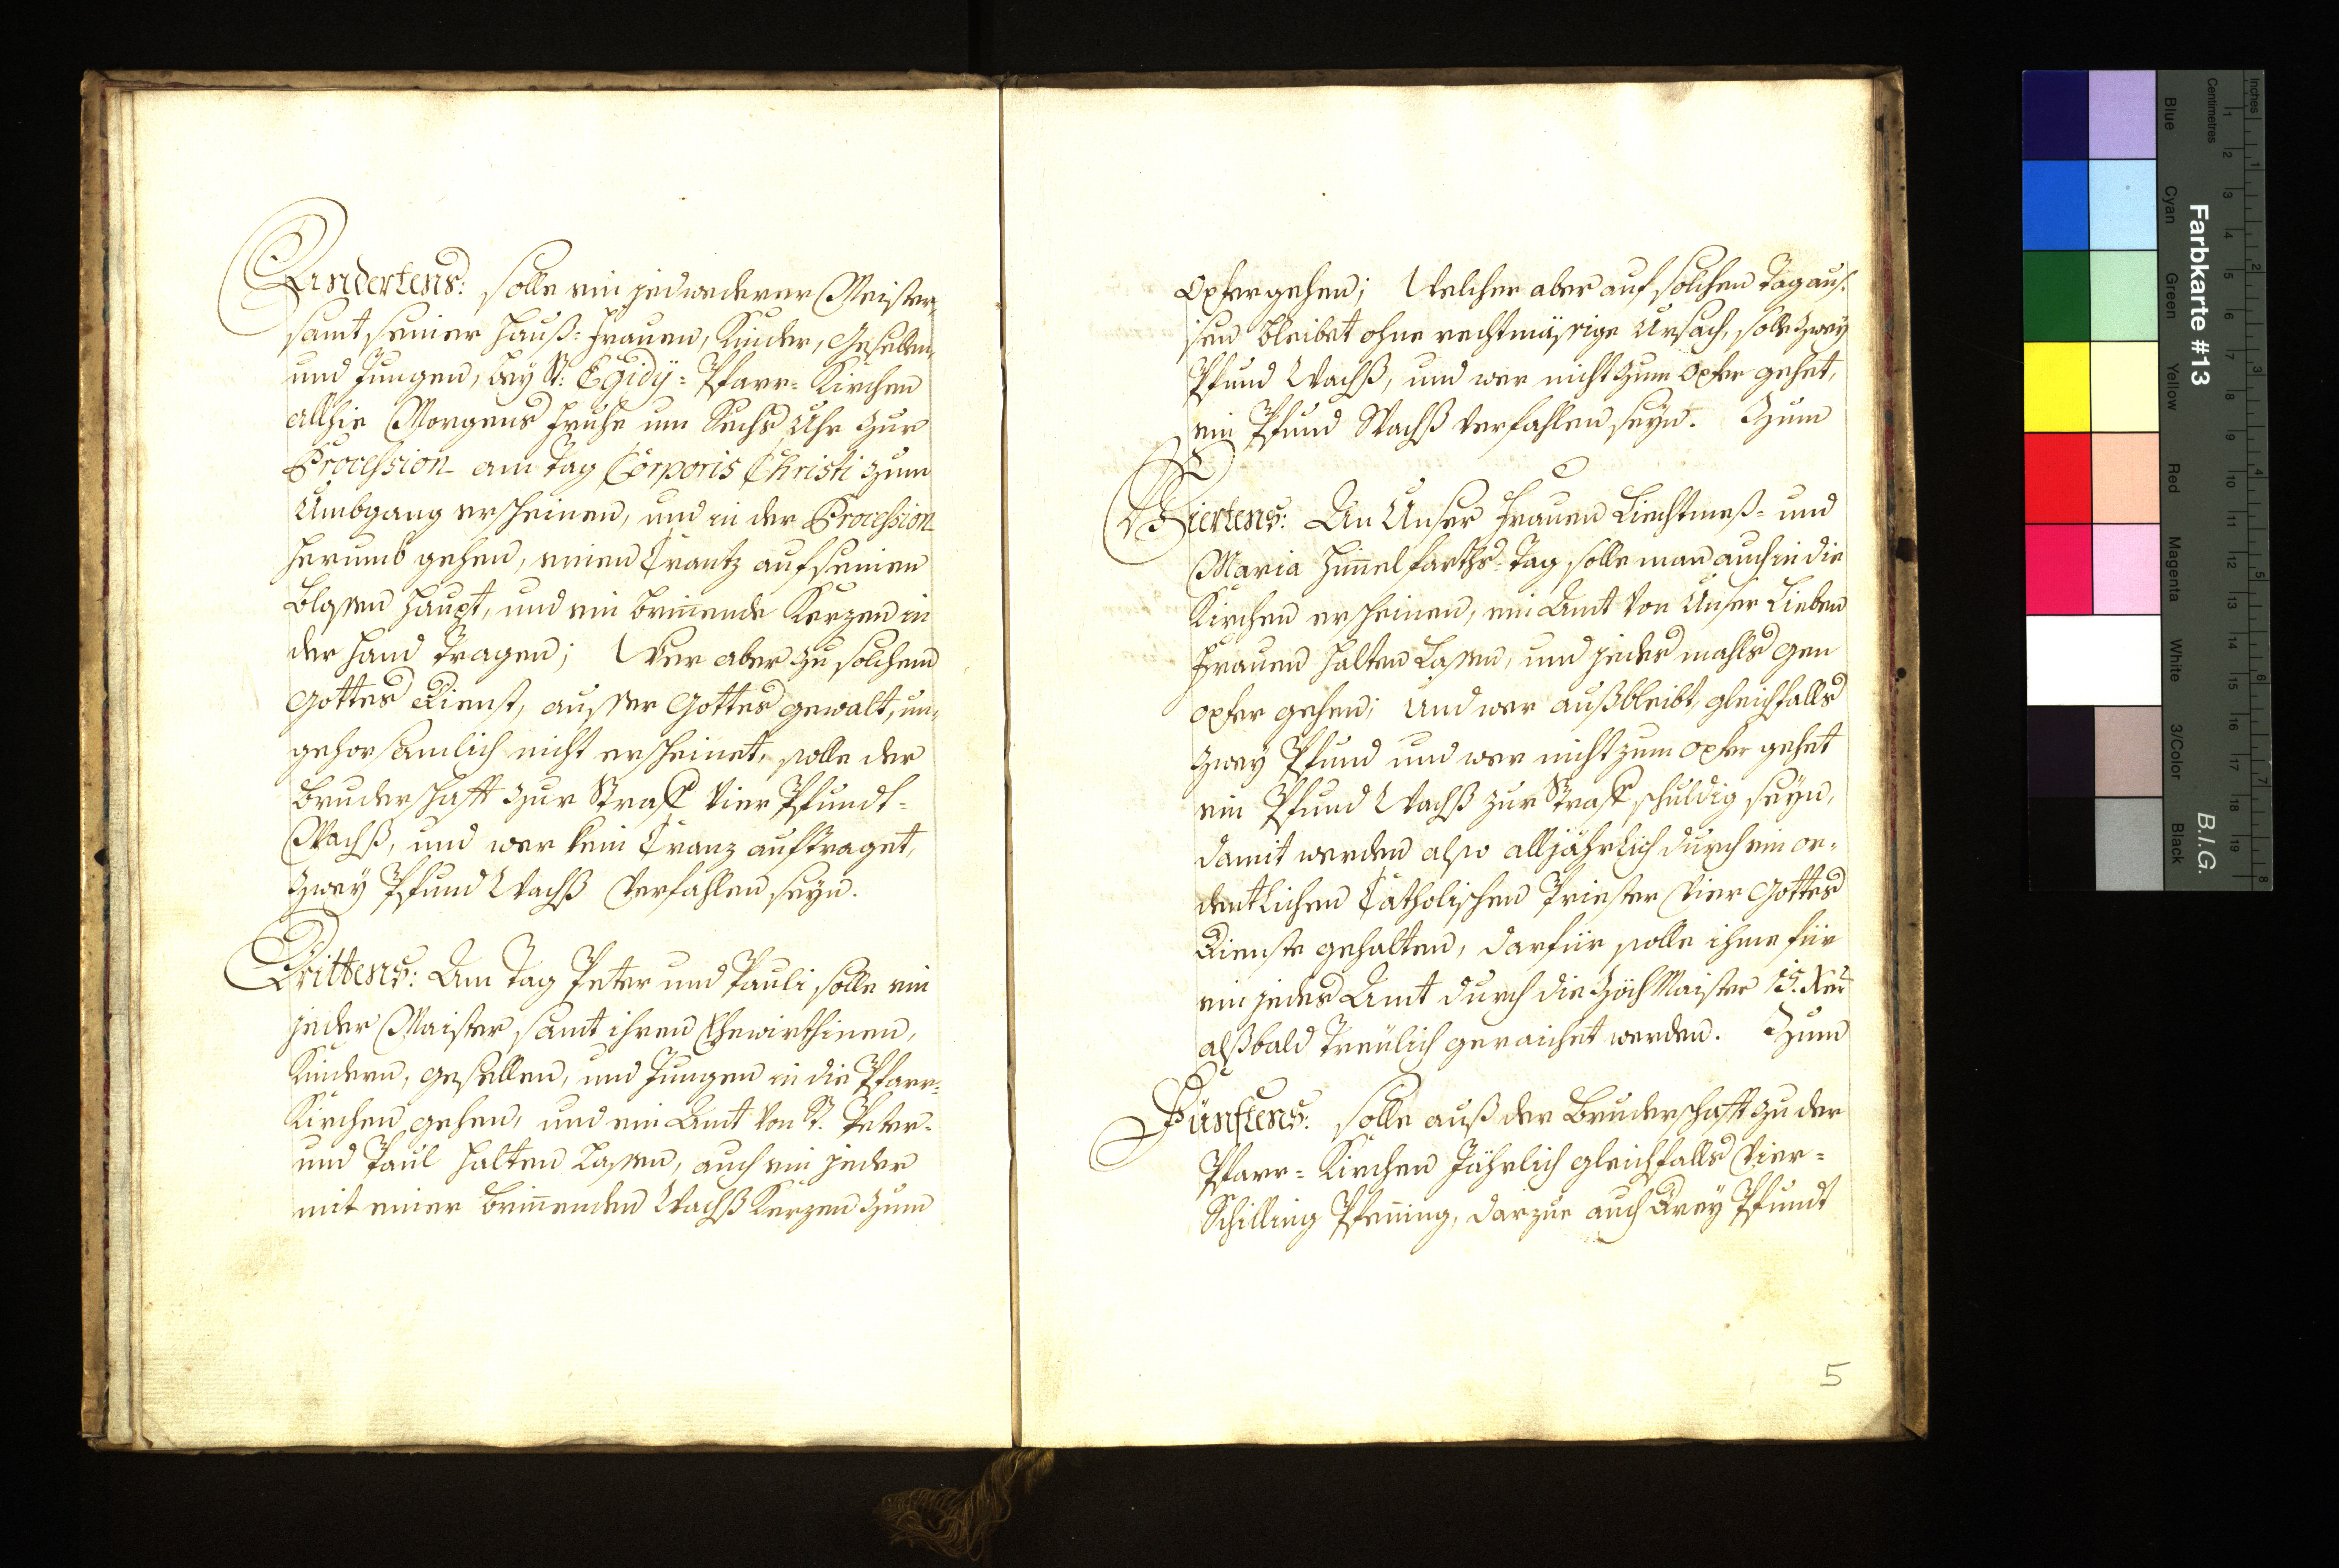 Andertens: solle ein jedwederer Meister,
samt seiner Hauß=Frauen, Kinder, Gesellen,
und Jungen, bey St: Egidÿ=Pfarr=Kirchen
allhie Morgens Fruhe um Sechs Uhr zur
Procession am Tag Corporis Christi zum
Umbgang erscheinen, und in der Procession
herumb gehen, einen Crantz auf seinen
blossen Haupt, und ein brinende Kerzen in
der Hand tragen; Wer aber zu solchem
Gottes Dienst, ausser Gottes gewalt, un=
gehorsamlich nicht erscheinet, solle der
Bruderschafft zur Straff Vier Pfundt=
Wachß, und wer kein Cranz auftraget,
Zweÿ Pfund Wachß Verfahlen seyn.
Drittens: Am Tag Peter und Pauli solle ein
jeder Maister, samt ihren Ehewirthinen,
Kindern, gesellen, und Jungen in die Pfarr=
Kirchen gehen, und ein Amt von St. Peter=
und Paul halten lassen, auch ein jeder
mit einer brinenden Wachß Kerzen zum
Opfer gehen; Welcher aber auf solchen Tag aus=
sen bleibet ohne rechtmässige Ursach, solle zweÿ
Pfund Wachß, und wer nicht zum Opfer gehet,
ein Pfund Wachß verfahlen seÿn. Zum
Viertens: An Unser Frauen Liechtmeß= und
Maria Himelfarths=Tag solle man auch in die
Kirchen erscheinen, ein Amt von Unser Lieben
Frauen halten Lassen, und jedes mahls gen
opfer gehen; Und wer außbleibt, gleichfalls
zweÿ Pfund und wer nicht zum opfer gehet
ein Pfund Wachß zur Straff schuldig seÿn,
damit werden also alljährlich durch ein or=
dentlichen Catholischen Priester Vier Gottes
Dienste gehalten, darfür solle ihme für
ein jedes Amt durch die Zöch Maister 15. Xer
alßbald treülich geraichet werden. Zum
Fünftens: solle auß der Bruderschafft zu der
Pfarr=Kirchen Jährlich gleichfalls Vier=
Schilling Pfening, darzue auch Dreÿ Pfundt
5
Inches
Centimetres
Farbkarte #13
B.I.G.
Blue
Cyan
Green
Yellow
Red
Magenta
White
3/Color
Black
1 2 3 4 5 6 7 8 9 10 11 12 13 14 15 16 17 18 19
1 2 3 4 5 6 7 8